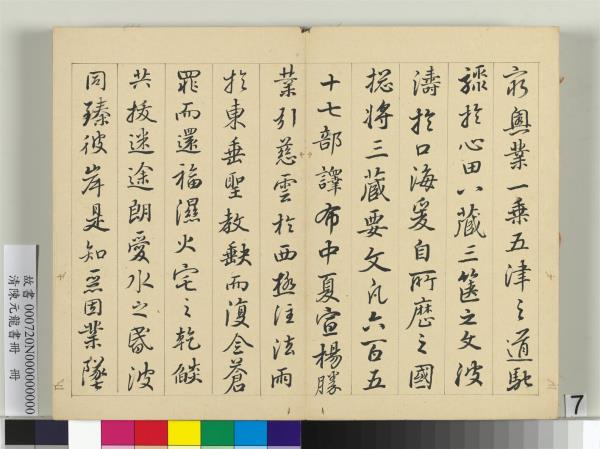 窮奧業一乗五津之道馳
驟於心田八藏三篋之文波
濤於口海爰自所歷之國
捴將三藏要文凡六百五
十七部譯布中夏宣揚勝
業引慈雲於西極注法雨
於東垂聖教缺而復全蒼
罪而還福濕火宅之乾𦦨
共拔迷途朗愛水之昏波
同臻彼岸是知惡因業墜
故書 000720N000000000
清陳元龍書冊 冊
7